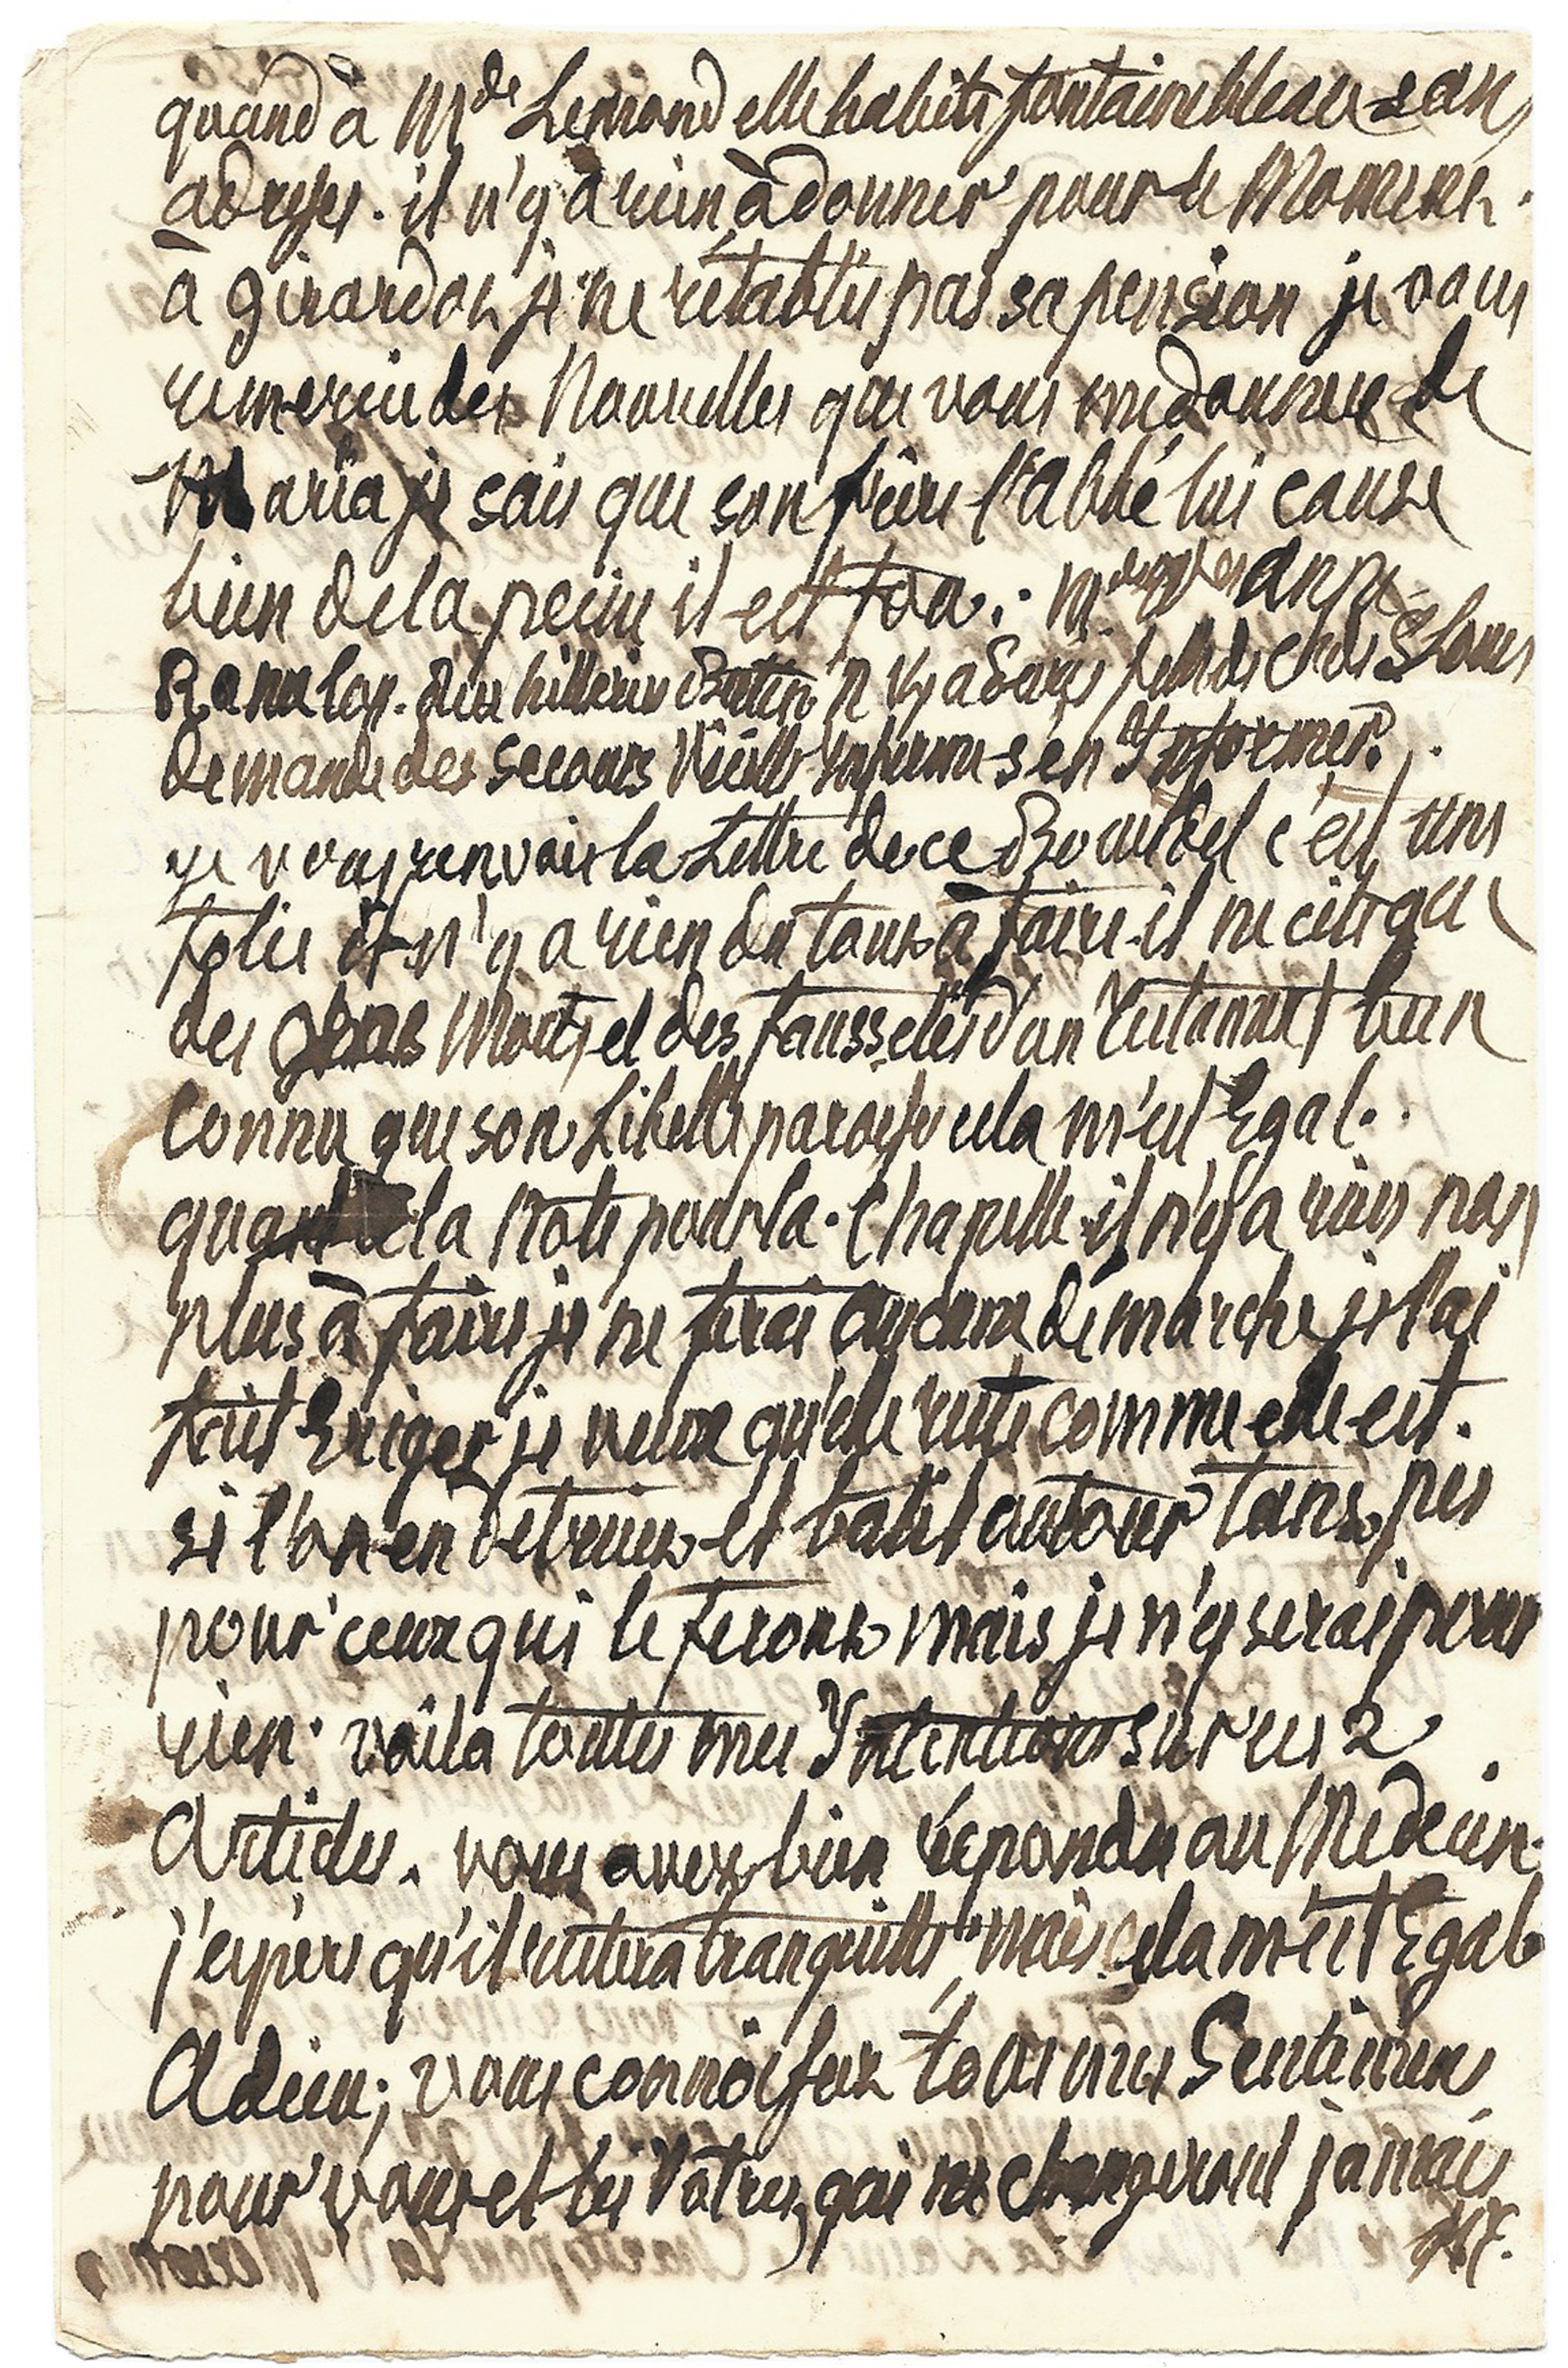 quand à Mde Lemand elle habite fontainebleau san
adresse. il n'y a rien à donner pour le Moment.
à girardot je ne rétablis pas sa pension je vous
remercie des Nouvelles que vous me donnez de
Maria je sais que son frère l'abbé lui cause
bien de la peine il est fou. Anne
demande des secours Vieille Infirme s'en Informer.
je vous renvois la Lettre de ce c'est une
folie il n'y a rien du tout à faire il ne cite que
des gens Morts et des faussetés d'un bien
connu que son Libelle paroisse cela m'est Egal.
quant à la Note pour la Chapelle il n'y a rien non
plus à faire je ne ferai aucune démarche je l'ai
fait Eriger je veux qu'elle reste comme elle est.
si l'on en detruit et batit autour tans pis
pour ceux qui le feront mais je n'y serai pour
rien. voila toutes mes Intentions sur ces 2
Articles. vous avez bien répondu au Médecin.
j'espère qu'il restera tranquille mais cela m'est Egal
Adieu; vous connoissez tous mes Sentimens
pour vous et les Votres, qui ne changeront jamais